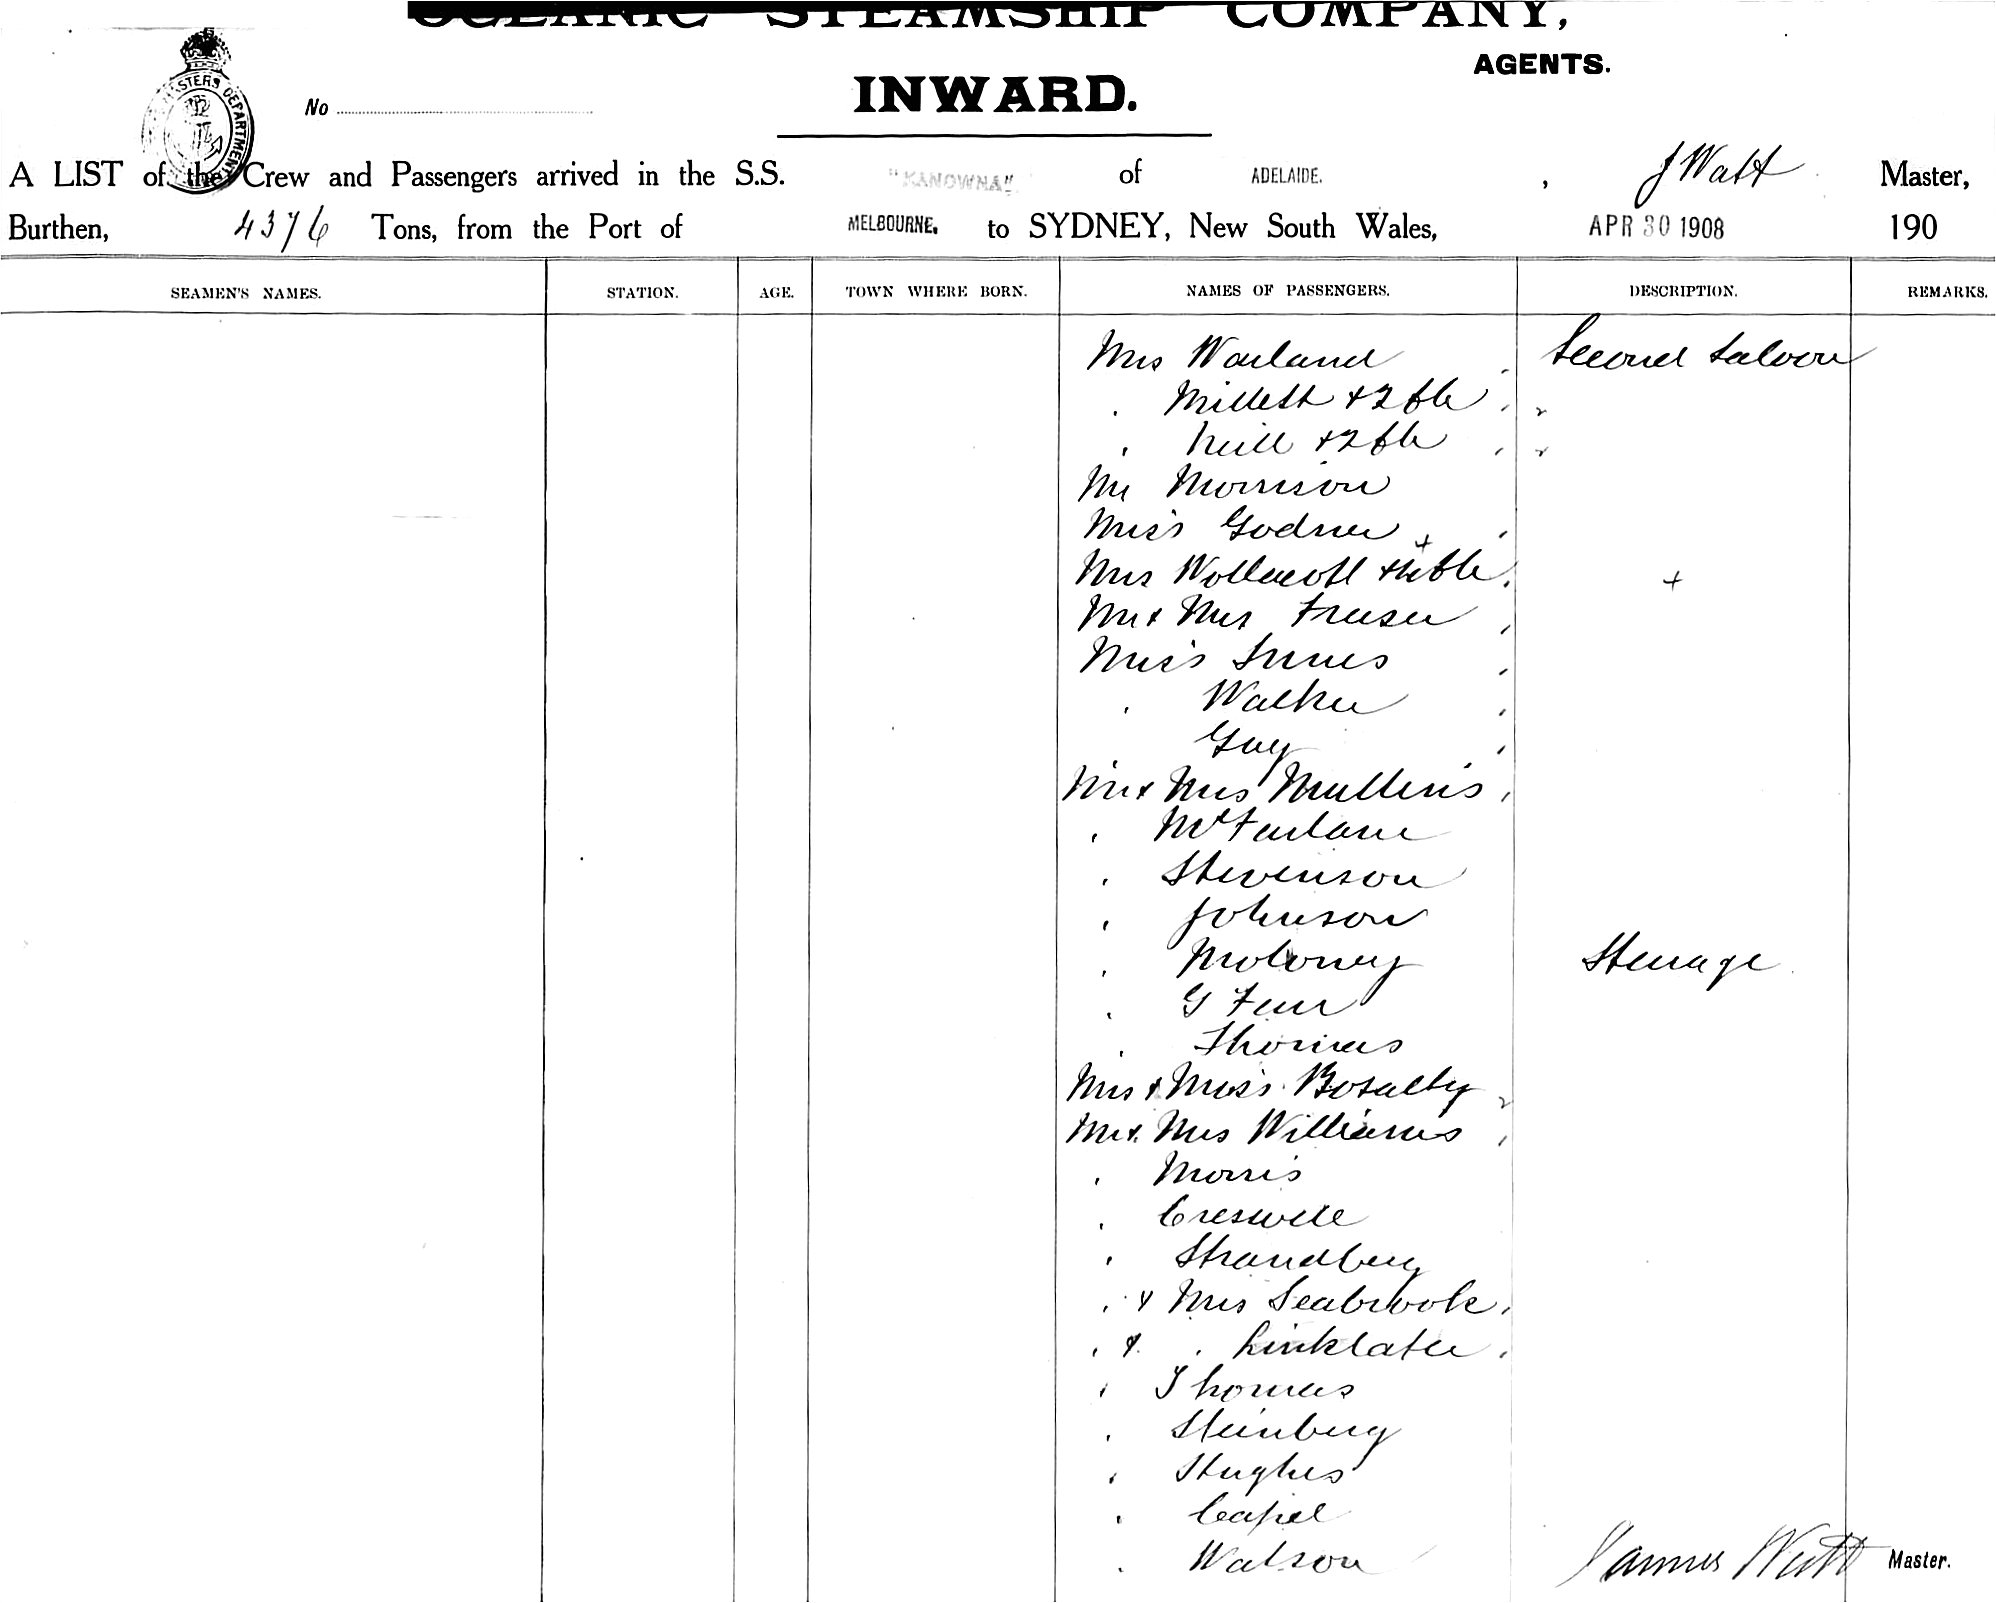 OCEANIC STEAMSHIP COMPANY,
AGENTS.
INWARD.
No
MASTERS DEPARTMENT
A LIST of the Crew and Passengers arrived in the S.S. "KANOWNA" of ADELAIDE. , J Watt Master,
Burthen, 4376 Tons, from the Port of MELBOURNE. to SYDNEY, New South Wales, APR 30 1908 190
SEAMEN'S NAMES. STATION. AGE. TOWN WHERE BORN. NAMES OF PASSENGERS. DESCRIPTION. REMARKS.
Mrs Warland Second Saloon
" Millett + 2 " "
" Neill + 2 " "
Mr Morrison
Miss Godner +
Mrs Wollacott + +
Mr + Mrs Fraser
Miss Innes
" Walker
Guy
Mr + Mrs Mullins
" McFarlane
" Stevenson
" Johnson
" Moloney Steerage
" G Farr
" Thomas
Mrs + Miss
Mr + Mrs Williams
" Morris
" Creswell
" Strandberg
" + Mrs Seabrook
" + " Linklater
" Thomas
" Steinberg
" Hughes
" Capel
" Watson
James Watt Master.